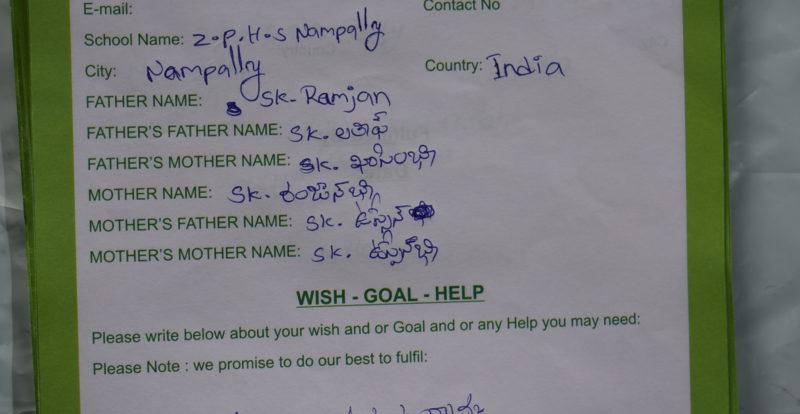 E-mail:
Contact No
School Name: Z.P.H.S Nampally
City: Nampally
Country: India
FATHER NAME: SK. Ramjan
FATHER'S FATHER NAME: SK. లతీఫ్
FATHER'S MOTHER NAME: SK.
MOTHER NAME: SK.
MOTHER'S FATHER NAME: SK.
MOTHER'S MOTHER NAME: SK.
WISH - GOAL - HELP
Please write below about your wish and or Goal and or any Help you may need:
Please Note : we promise to do our best to fulfil: